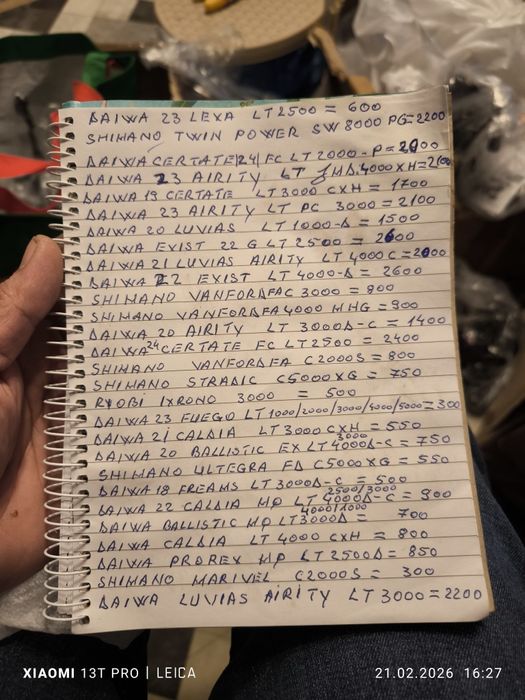 DAIWA 23 LEXA LT2500 = 600
SHIMANO TWIN POWER SW 8000 PG=2200
DAIWA CERTATE 24 FC LT 2000-P=2000
DAIWA 23 AIRITY LT 4000XH=2100
DAIWA 19 CERTATE LT3000 CXH = 1700
DAIWA 23 AIRITY LT PC 3000 = 2100
DAIWA 20 LUVIAS LT 1000-D = 1500
DAIWA EXIST 22 G LT 2500 = 2600
DAIWA 21 LUVIAS AIRITY LT 4000C=2000
DAIWA 22 EXIST LT 4000-D = 2600
SHIMANO VANFORDFAC 3000 = 800
SHIMANO VANFORDFA 4000 MHG = 900
DAIWA 20 AIRITY LT 3000D-C = 1400
DAIWA 24 CERTATE FC LT2500 = 2400
SHIMANO VANFORDFA C2000S = 800
SHIMANO STRADIC C5000XG = 750
RYOBI IXRONO 3000 = 500
DAIWA 23 FUEGO LT 1000/2000/3000/4000/5000=300
DAIWA 21 CALDIA LT 3000 CXH = 550
3000
DAIWA 20 BALLISTIC EX LT4000D-C = 750
SHIMANO ULTEGRA FD C5000XG = 550
DAIWA 18 FREAMS LT 3000D-C = 500
2500/3000
DAIWA 22 CALDIA MQ LT 4000D-C = 900
4000/1000
DAIWA BALLISTIC MQ LT3000D = 700
DAIWA CALDIA LT 4000 CXH = 800
DAIWA PROREX MQ LT 2500D = 850
SHIMANO MARIVEL C2000S = 300
DAIWA LUVIAS AIRITY LT 3000=2200
XIAOMI 13T PRO | LEICA
21.02.2026 16:27